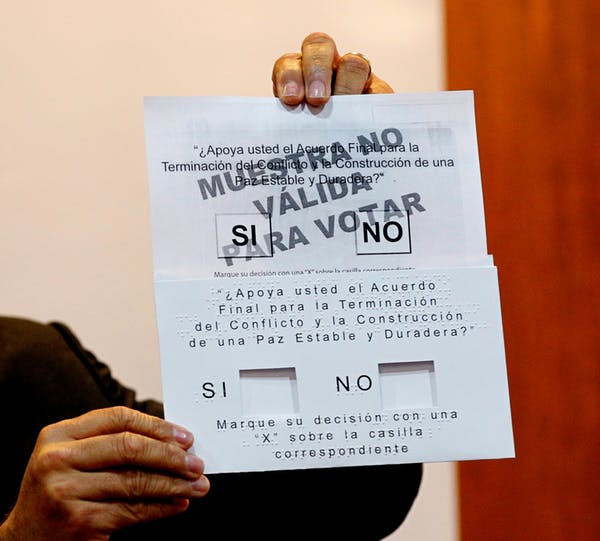 "¿Apoya usted el Acuerdo Final para la
Terminación del Conflicto y la Construcción de una
Paz Estable y Duradera?"
MUESTRA NO
VÁLIDA
PARA VOTAR
SI NO
Marque su decisión con una "X" sobre la casilla correspondiente
"¿Apoya usted el Acuerdo
Final para la Terminación
del Conflicto y la Construcción
de una Paz Estable y Duradera?"
SI NO
Marque su decisión con una
"X" sobre la casilla
correspondiente